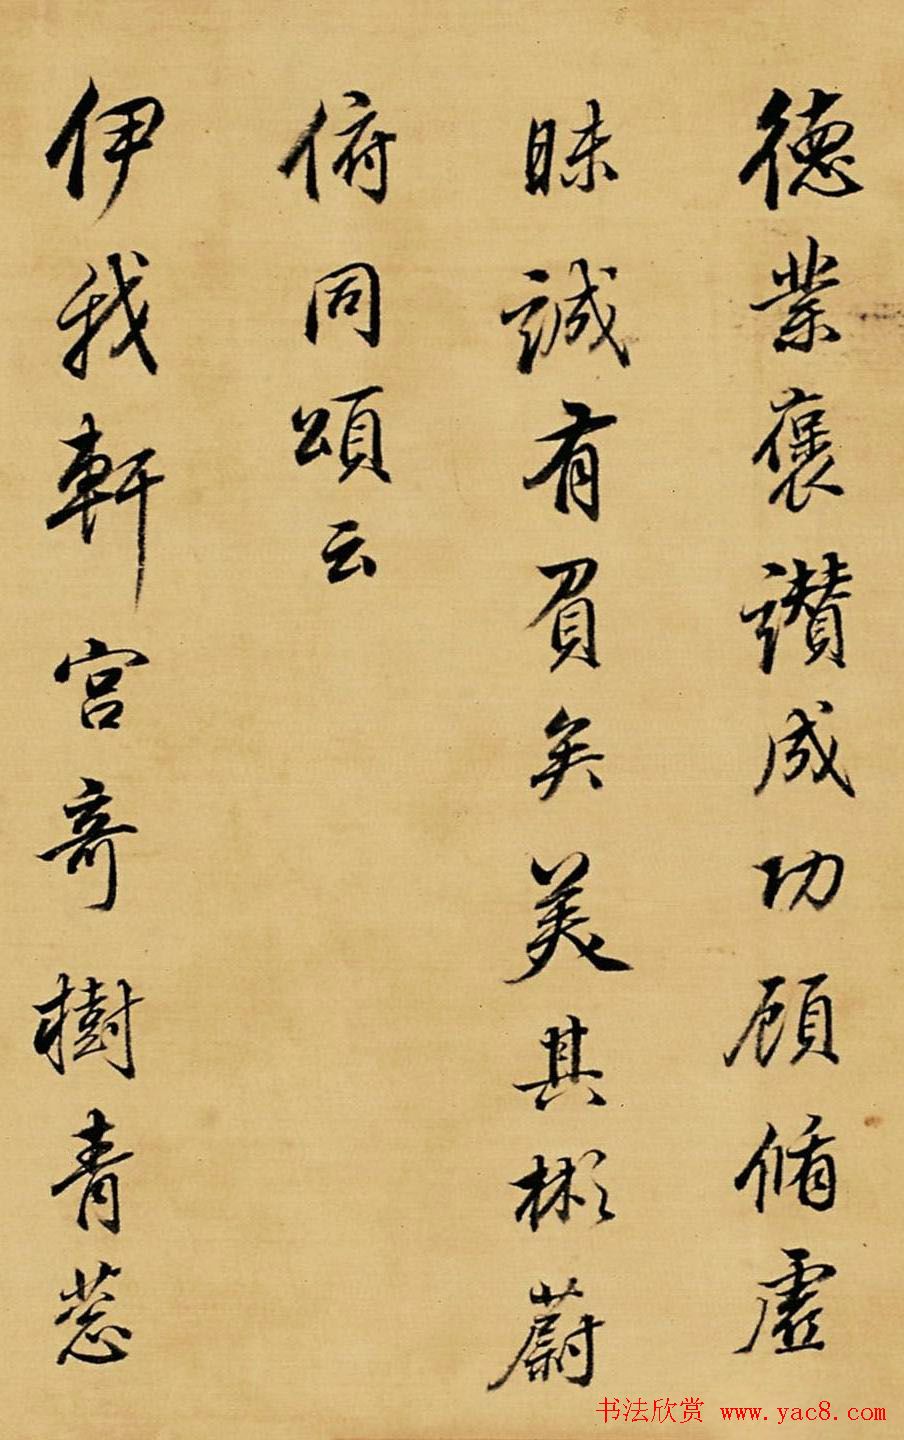 德業褒讚成功顧脩虛
昧誠有負矣美其彬蔚
俯同頌云
伊我軒宮奇樹青蔥
书法欣赏 www.yac8.com